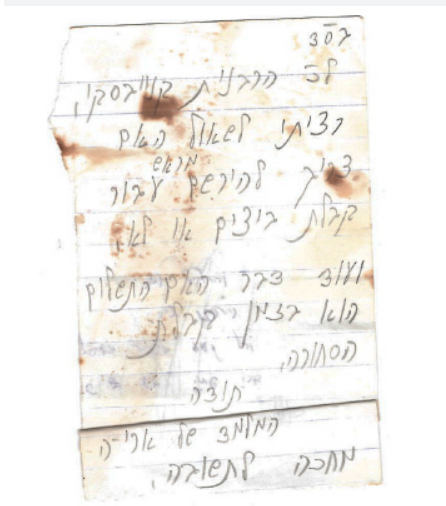 בס״ד
לכ׳ הרבנית קנייבסקי,
רציתי לשאול האם
צריך מראש להירשם עבור
קבלת ביצים או לא,
ועוד דבר האם התשלום
הוא בזמן קבלת
הסחורה,
תודה
המלמד של ארי-ה
מחכה לתשובה.